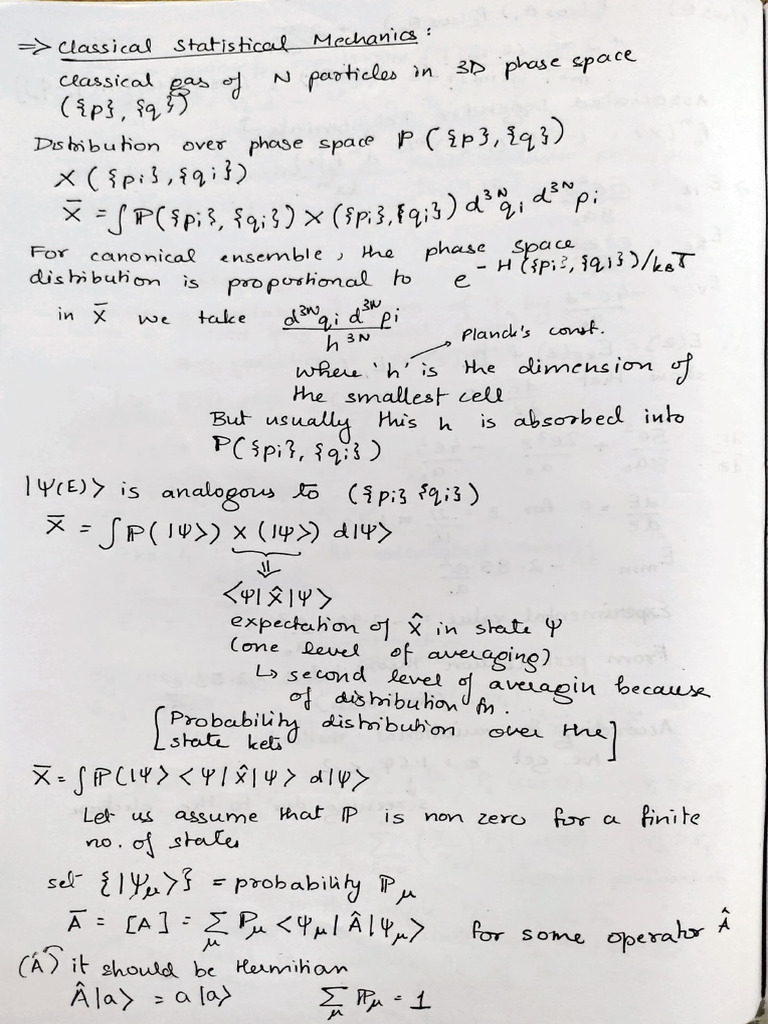 ⇒ Classical Statistical Mechanics:
Classical gas of N particles in 3D phase space
({p}, {q})
Distribution over phase space ℙ({p}, {q})
X({pi}, {qi})
X̄ = ∫ℙ({pi}, {qi}) X({pi}, {qi}) d³ᴺqi d³ᴺpi
For canonical ensemble, the phase space
distribution is proportional to e^-H({pi}, {qi})/kBT
in X̄ we take d³ᴺqi d³ᴺpi / h³ᴺ
Planck's const.
where 'h' is the dimension of
the smallest cell
But usually this h is absorbed into
ℙ({pi}, {qi})
|Ψ(E)⟩ is analogous to ({pi} {qi})
X̄ = ∫ℙ(|Ψ⟩) X(|Ψ⟩) d|Ψ⟩
⇓
⟨Ψ|X̂|Ψ⟩
expectation of X̂ in state Ψ
(one level of averaging)
↳ second level of averagin because
of distribution fn.
[Probability distribution over the
state kets]
X̄ = ∫ℙ(|Ψ⟩ ⟨Ψ|X̂|Ψ⟩ d|Ψ⟩
Let us assume that ℙ is non zero for a finite
no. of states
set {|Ψμ⟩} = probability ℙμ
Ā = [A] = Σμ ℙμ ⟨Ψμ|Â|Ψμ⟩ for some operator Â
(Â) it should be Hermitian
Â|a⟩ = a|a⟩ Σμ ℙμ = 1